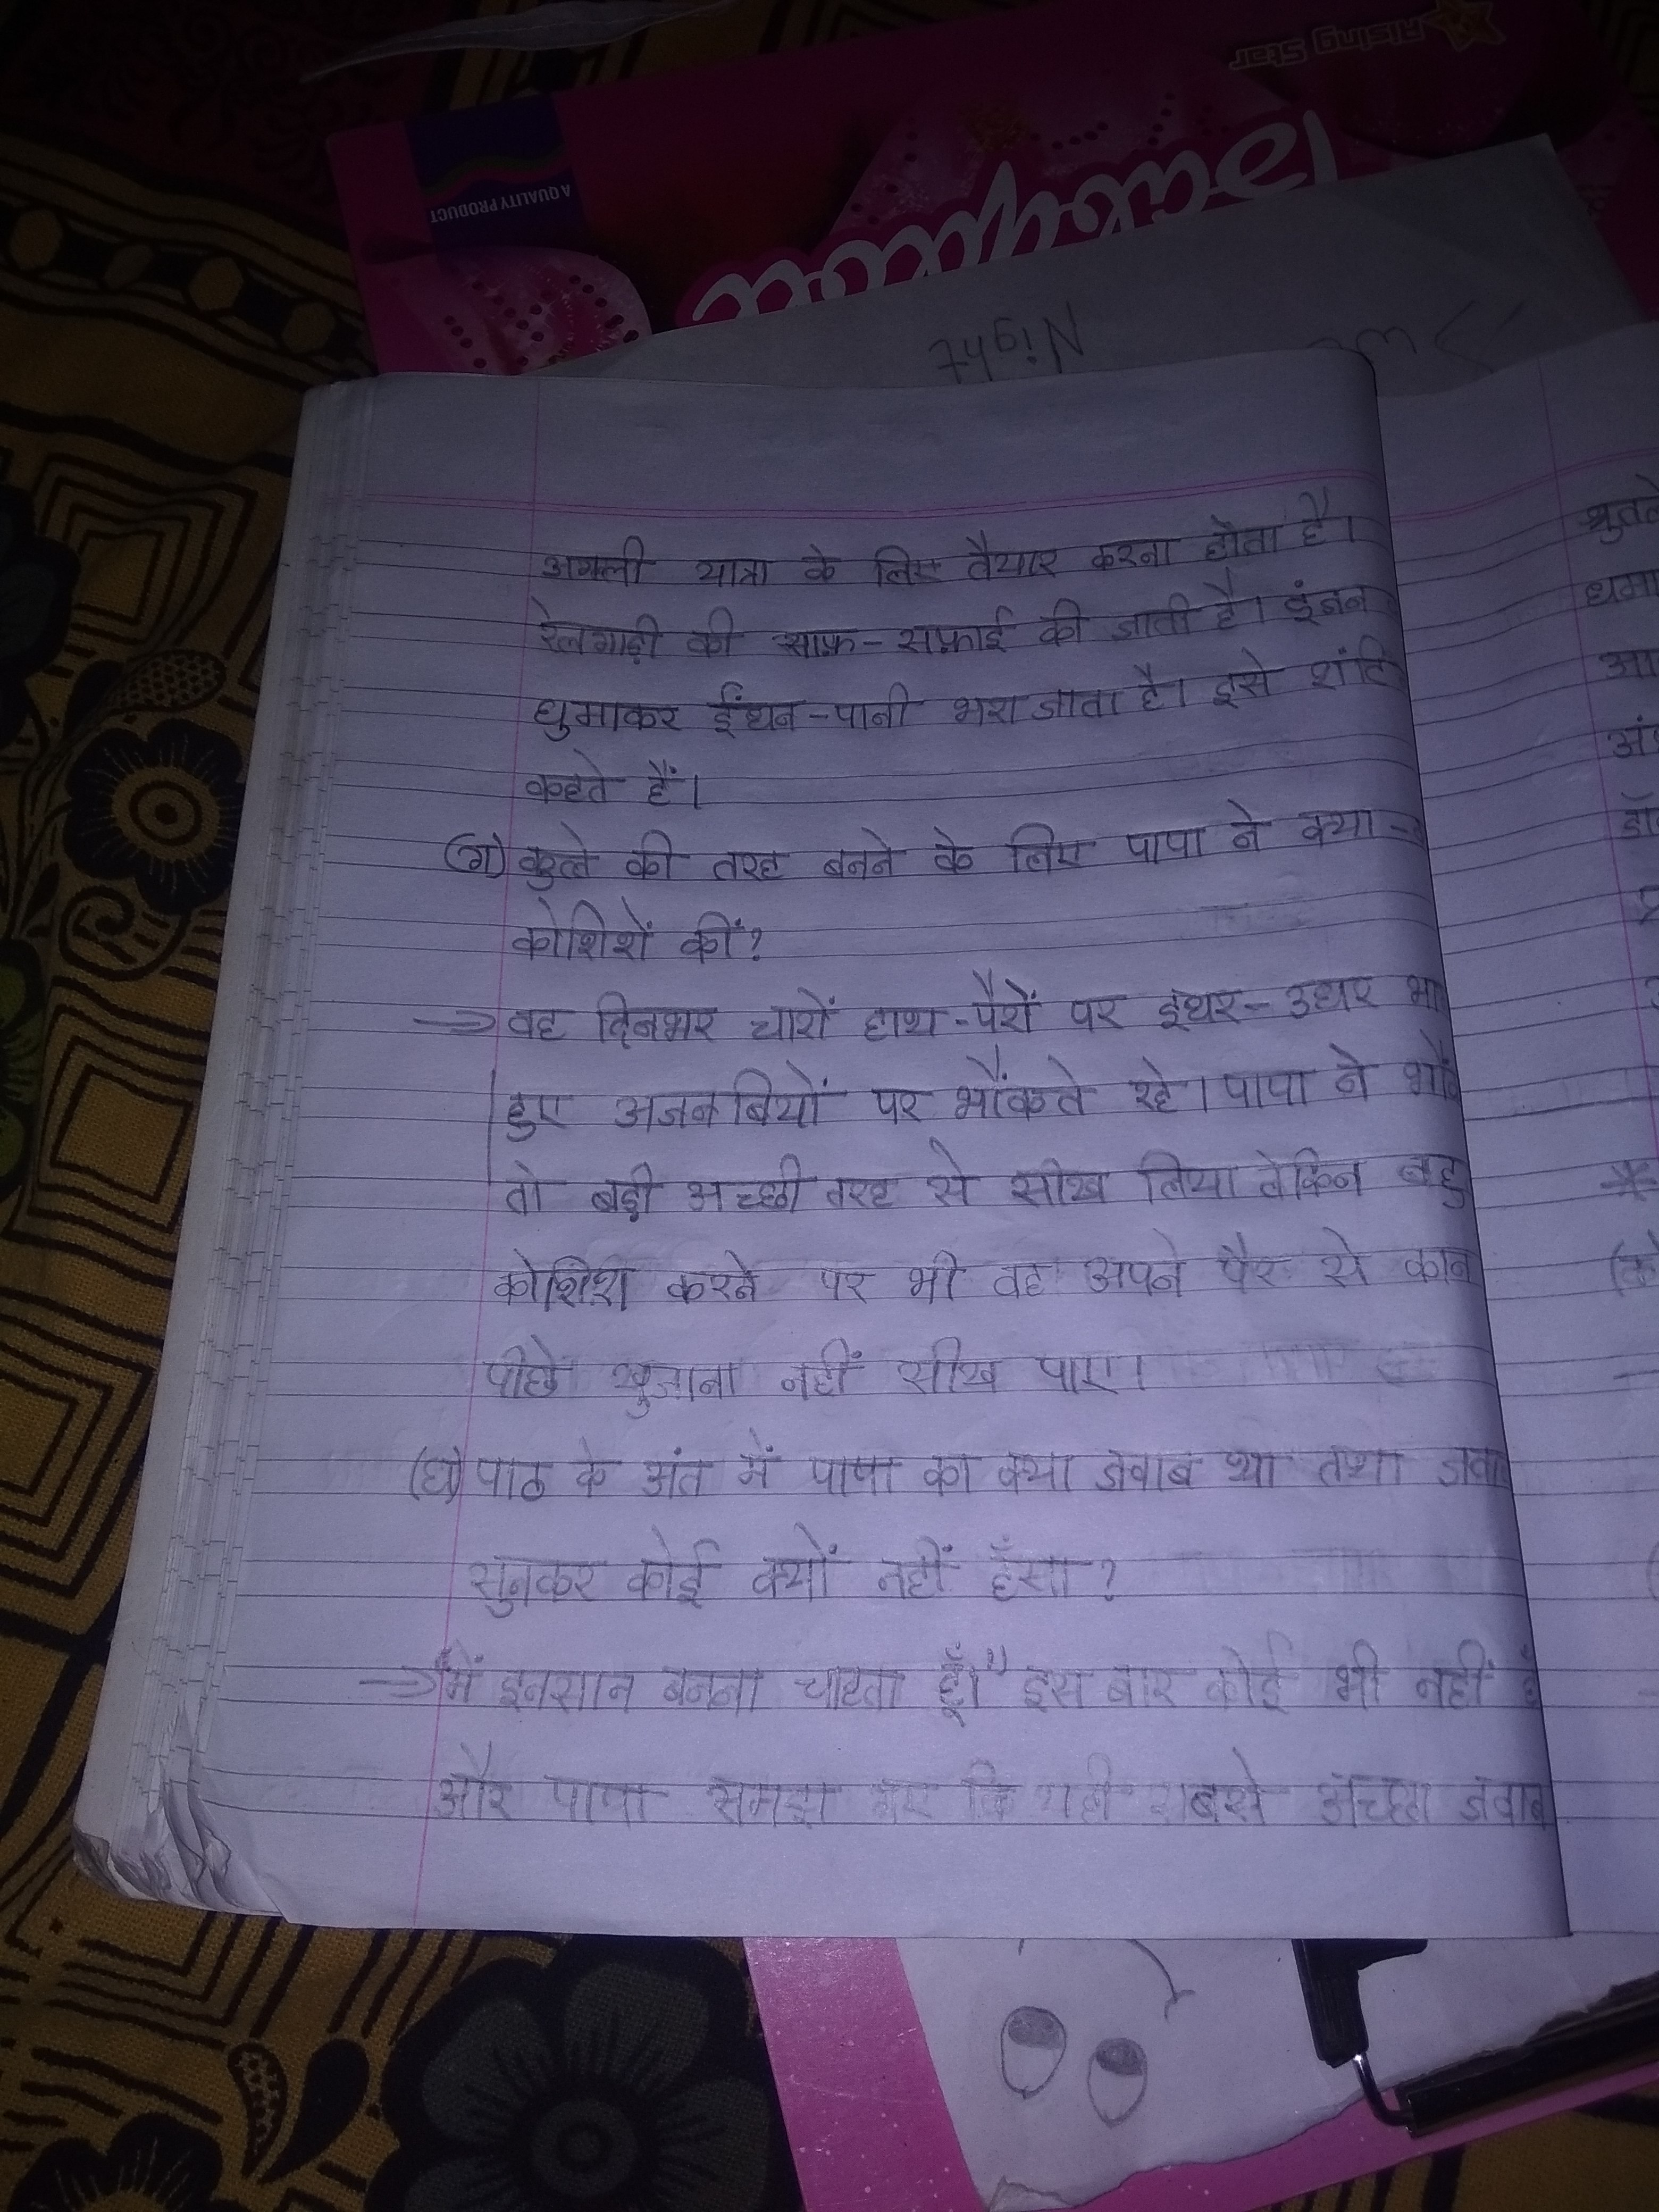 Rising Star
A QUALITY PRODUCT
Night
अगली यात्रा के लिए तैयार करना होता है।
रेलगाड़ी की साफ़-सफ़ाई की जाती है। इंजन
घुमाकर ईंधन-पानी भरा जाता है। इसे शंटिं
कहते हैं।
(ग) कुत्ते की तरह बनने के लिए पापा ने क्या-
कोशिशें कीं?
⇒ वह दिनभर चारों हाथ-पैरों पर इधर-उधर भा
हुए अजनबियों पर भौंकते रहे। पापा ने भौं
तो बड़ी अच्छी तरह से सीख लिया लेकिन बहु
कोशिश करने पर भी वह अपने पैर से कान
पीछे खुजाना नहीं सीख पाए।
(घ) पाठ के अंत में पापा का क्या जवाब था तथा जवा
सुनकर कोई क्यों नहीं हँसा?
⇒ "मैं इनसान बनना चाहता हूँ।" इस बार कोई भी नहीं हँ
और पापा समझ गए कि यही सबसे अच्छा जवाब